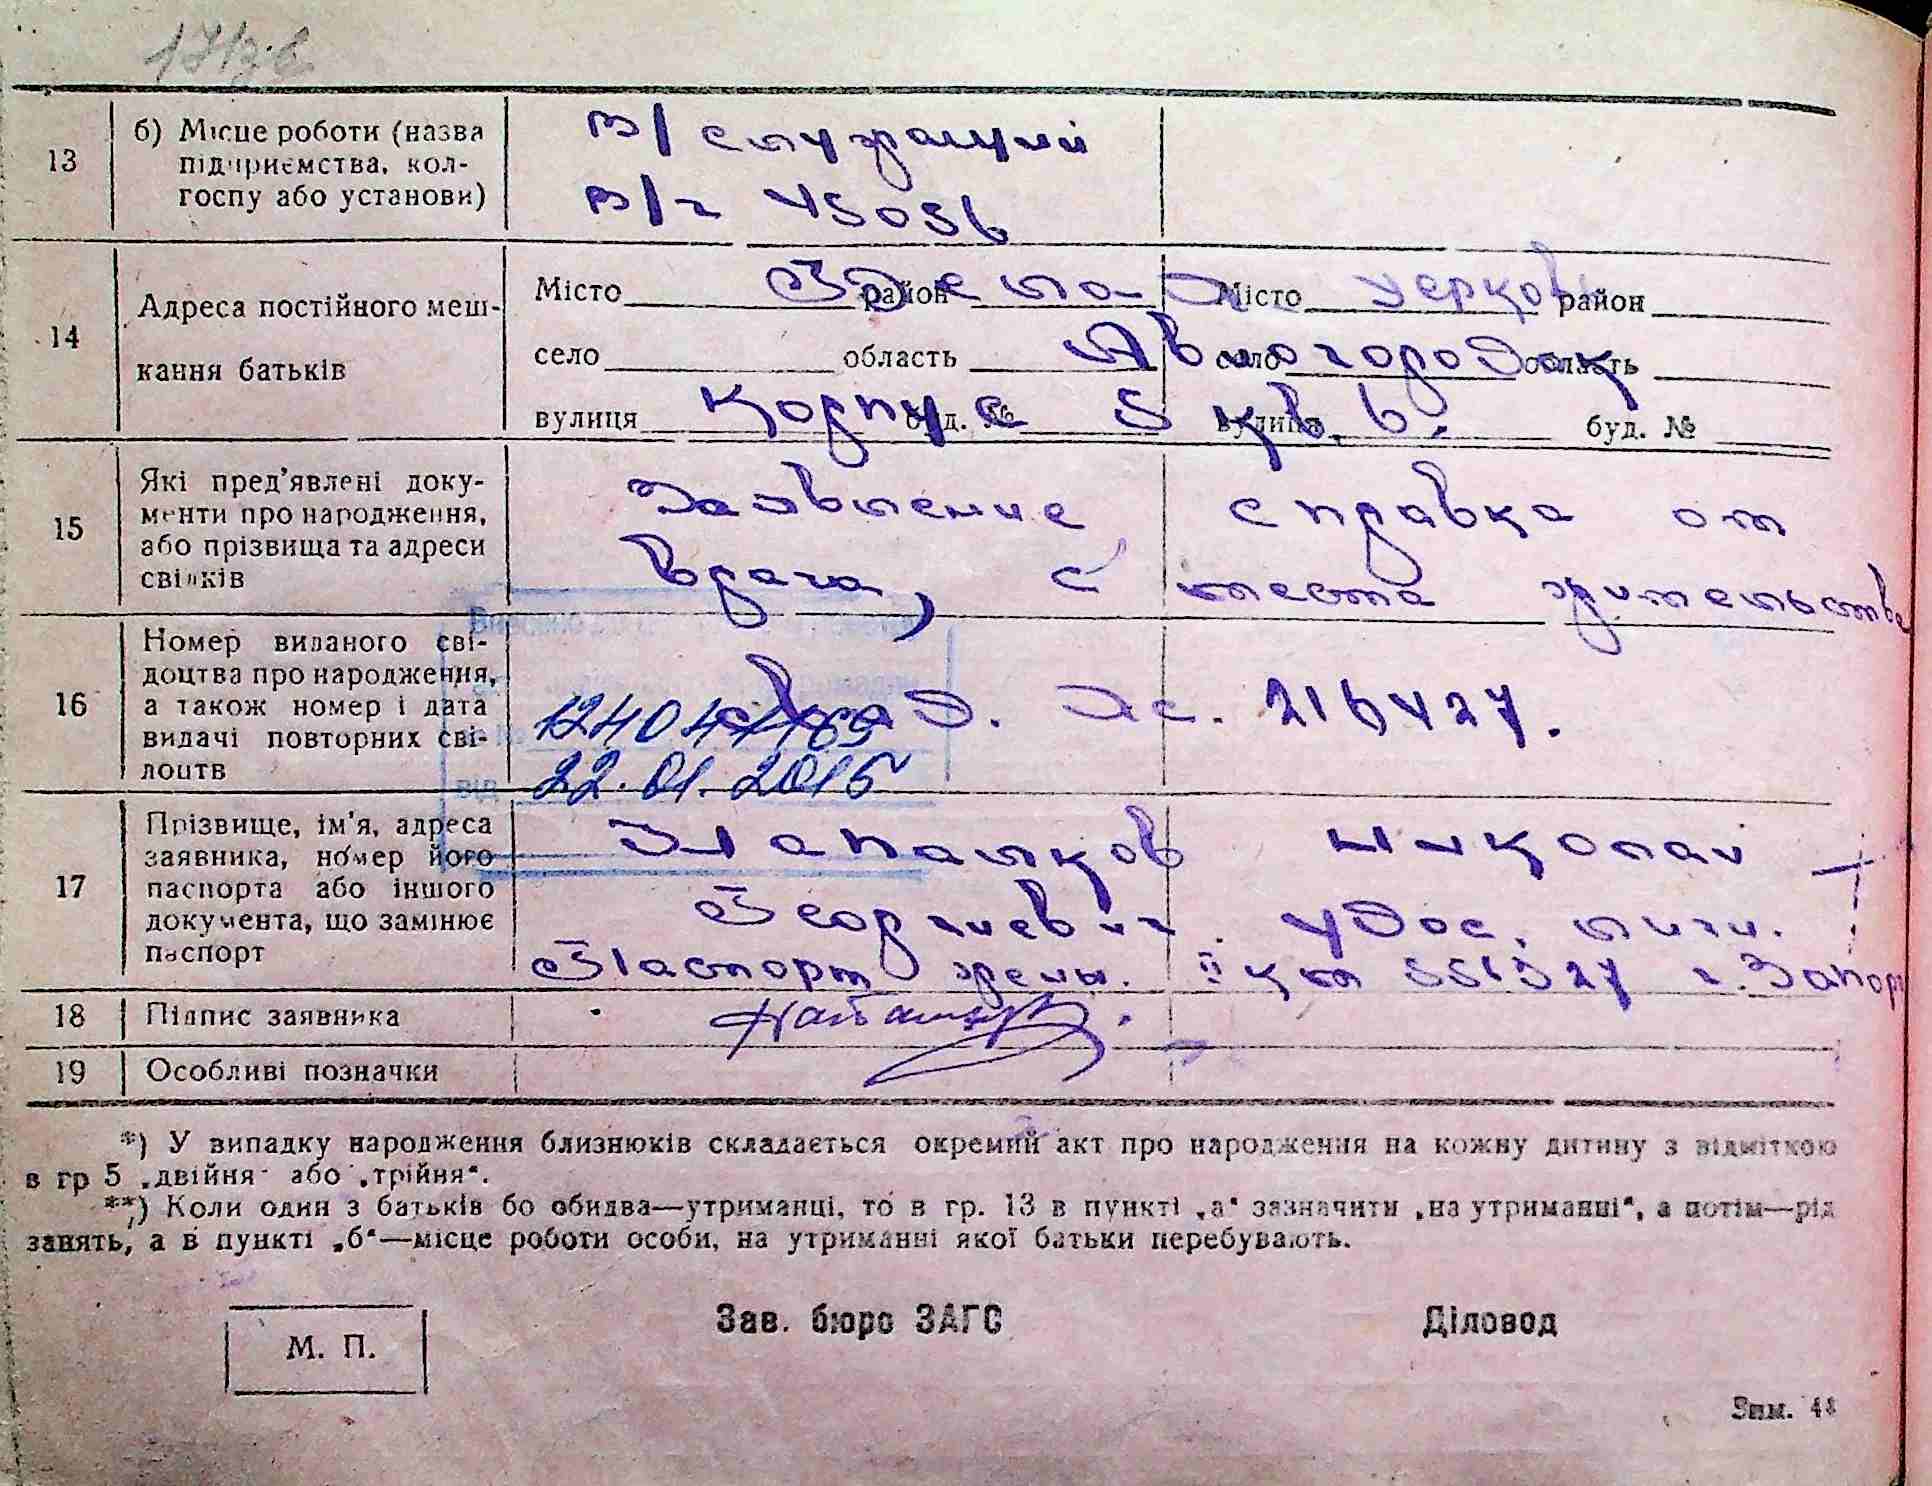 13
б) Місце роботи (назва
підприємства, кол-
госпу або установи)
в/служащий
в/ч 45056
14
Адреса постійного меш-
кання батьків
Місто район Місто район
село область село область
Авиогородок
вулиця буд. № вулиця буд. №
Корпус 5 кв. 6.
15
Які пред'явлені доку-
менти про народження,
або прізвища та адреси
свідків
Заявление справка от
врача, с места жительства
16
Номер виданого сві-
доцтва про народження,
а також номер і дата
видачі повторних сві-
доцтв
216427.
від 22.01.2016
17
Прізвище, ім'я, адреса
заявника, номер його
паспорта або іншого
документа, що замінює
паспорт
Николай
Георгиевич. удос. личн.
Паспорт жены.
18 Підпис заявника
19 Особливі позначки
*) У випадку народження близнюків складається окремий акт про народження на кожну дитину з відміткою
в гр 5 „двійня" або „трійня".
**) Коли один з батьків бо обидва—утриманці, то в гр. 13 в пункті „а" зазначити „на утриманні", а потім—рід
занять, а в пункті „б"—місце роботи особи, на утриманні якої батьки перебувають.
М. П.
Зав. бюро ЗАГС
Діловод